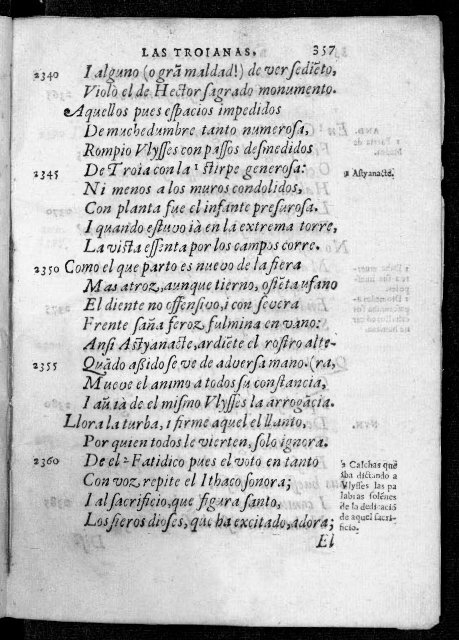 LAS TROIANAS. 357
2340 I alguno (o grã maldad!) de ver sediẽto,
Violò el de Hector sagrado monumento.
Aquellos pues espacios impedidos
De muchedumbre tanto numerosa,
Rompio Ulysses con passos desmedidos
2345 De Troia con la ¹ stirpe generosa:
Ni menos a los muros condolidos,
Con planta fue el infante presurosa.
I quando estuvo ià en la extrema torre,
La vista essenta por los campos corre.
2350 Como el que parto es nuevo de la fiera
Mas atroz, aunque tierno, ostẽta ufano
El diente no offensivo, i con severa
Frente saña feroz fulmina en vano:
Ansi Astyanacte, ardiẽte el rostro alte-
2355 Quãdo assido se ve de adversa mano. (ra,
Mueve el animo a todos su constancia,
I aũ ià de el mismo Ulysses la arrogãcia.
Llora la turba, i firme aquel el llanto,
Por quien todos le vierten, solo ignora.
2360 De el ² Fatidico pues el voto en tanto
Con voz repite el Ithaco sonora;
I al sacrificio, que figura santo,
Los fieros dioses, que ha excitado, adora;
El
1 Astyanacte.
2 Calchas quẽ
iba dictando a
Ulysses las pa
labras solẽnes
de la dedicació
de aquel sacri-
ficio.